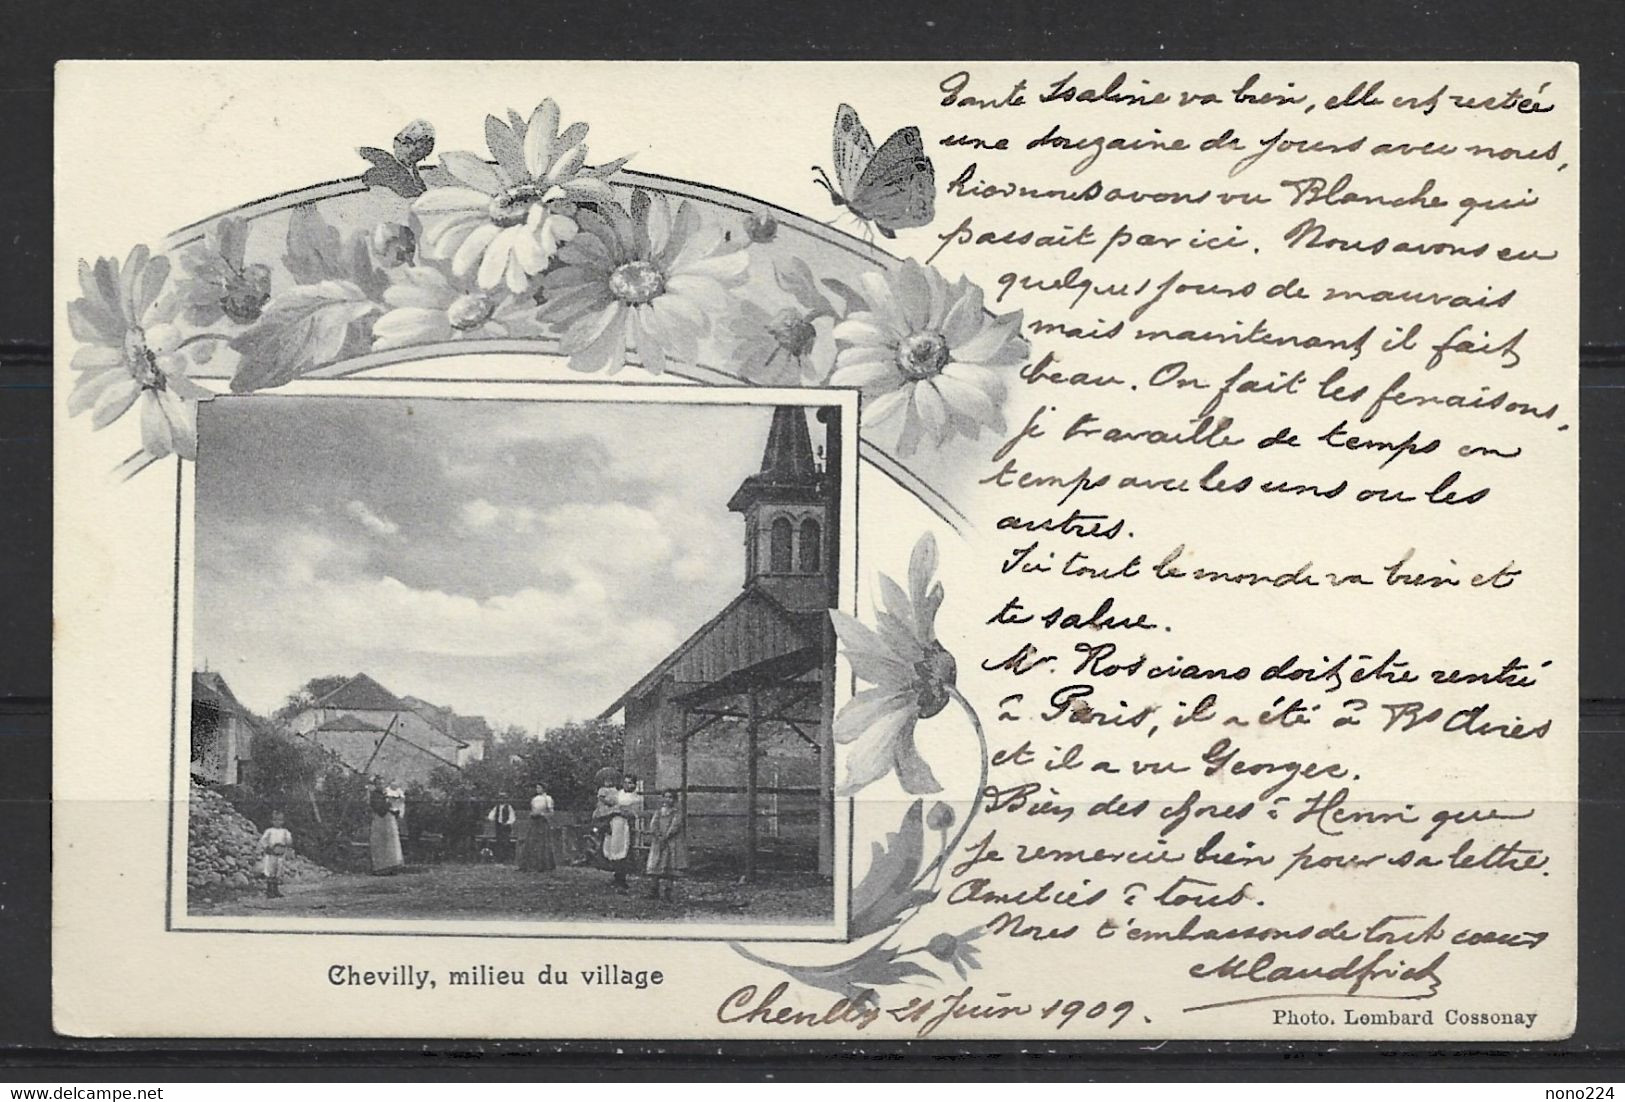 Tante Isaline va bien, elle est restée
une douzaine de jours avec nous,
hier nous avons vu Blanche qui
passait par ici. Nous avons eu
quelques jours de mauvais
mais maintenant il fait
beau. On fait les fenaisons,
je travaille de temps en
temps avec les uns ou les
autres.
Ici tout le monde va bien et
te salue.
Mr. Rosciano doit être rentré
à Paris, il a été à Bs Aires
et il a vu Georges.
Bien des choses à Henri que
je remercie bien pour sa lettre.
Amitiés à tous.
Nous t'embrassons de tout cœur
Chevilly, milieu du village
Chevilly 21 Juin 1909.
Photo. Lombard Cossonay
nono224